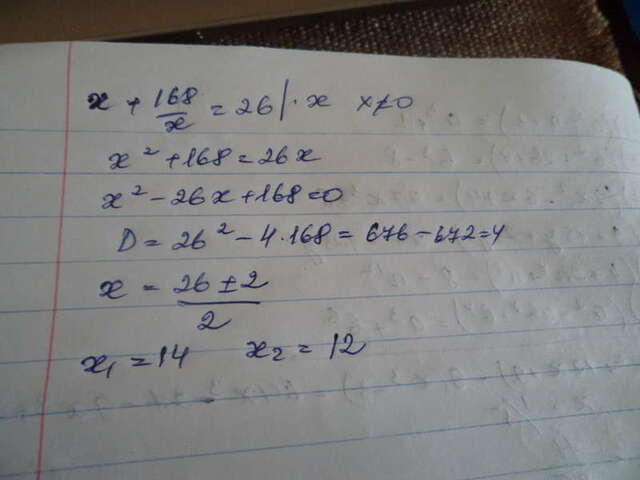 x + 168/x = 26 | · x x ≠ 0
x² + 168 = 26x
x² - 26x + 168 = 0
D = 26² - 4 · 168 = 676 - 672 = 4
x = 26 ± 2 / 2
x₁ = 14 x₂ = 12